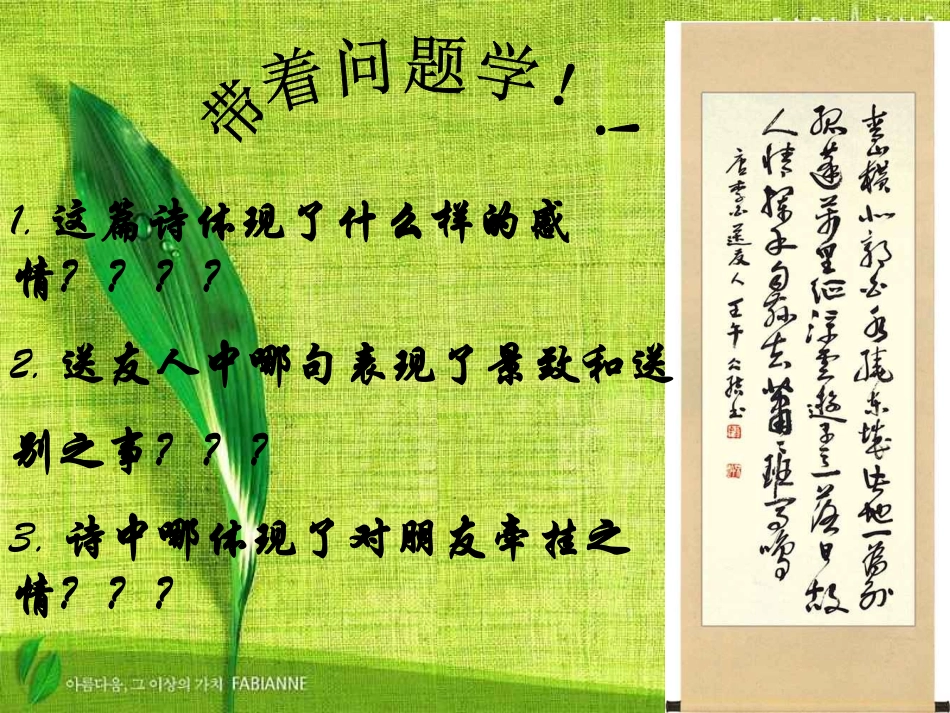 带着问题学！！
1. 这篇诗体现了什么样的感
情？？？？
2. 送友人中哪句表现了景致和送
别之事？？？
3. 诗中哪体现了对朋友牵挂之
情？？？
青山横北郭白水绕东城此地一为别
孤蓬万里征浮云游子意落日故
人情挥手自兹去萧々班马鸣
唐李白送友人 壬午
아름다움, 그 이상의 가치 FABIANNE